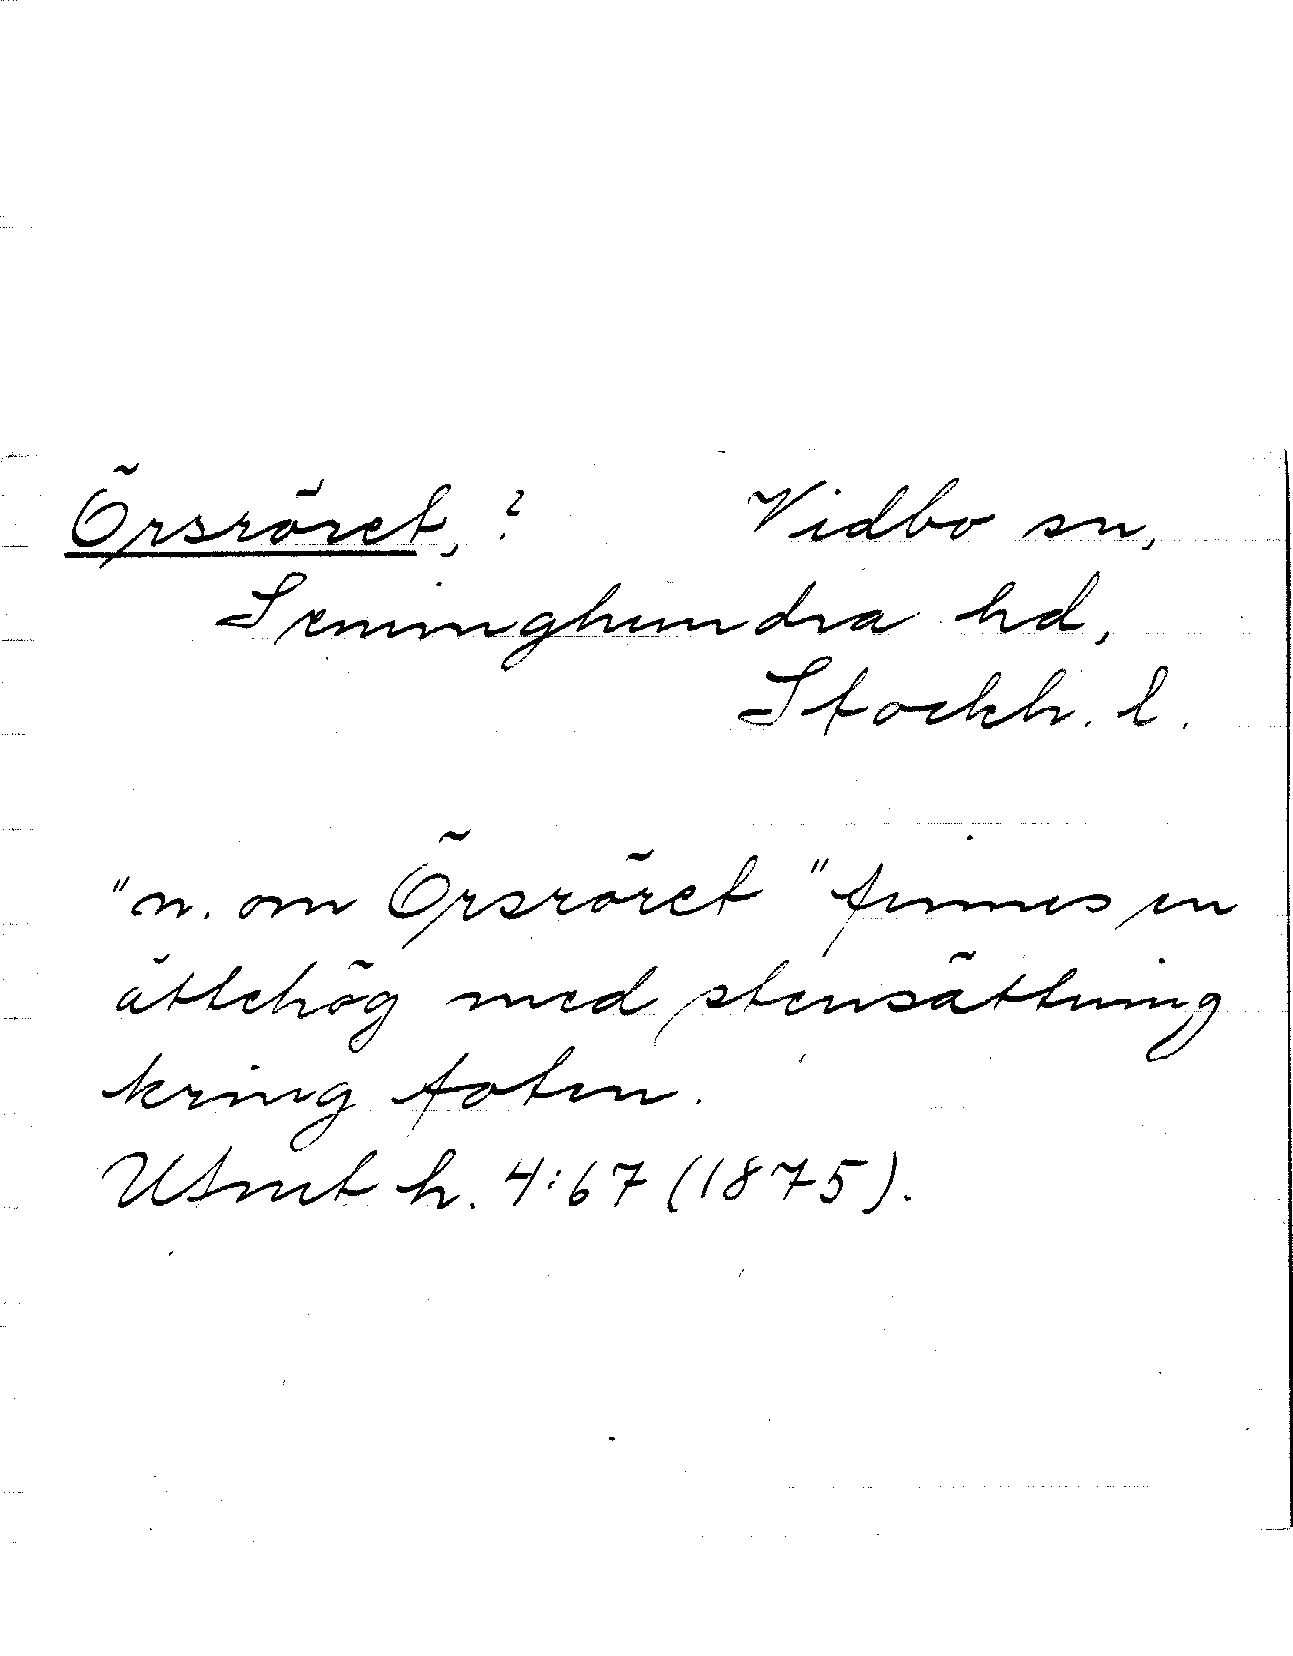 Örsröret, ? Vidbo sn,
Seminghundra hd,
Stockh. l.
"n. om Örsröret" finnes en
ättehög med stensättning
kring foten.
Utmt h. 4:67 (1875).